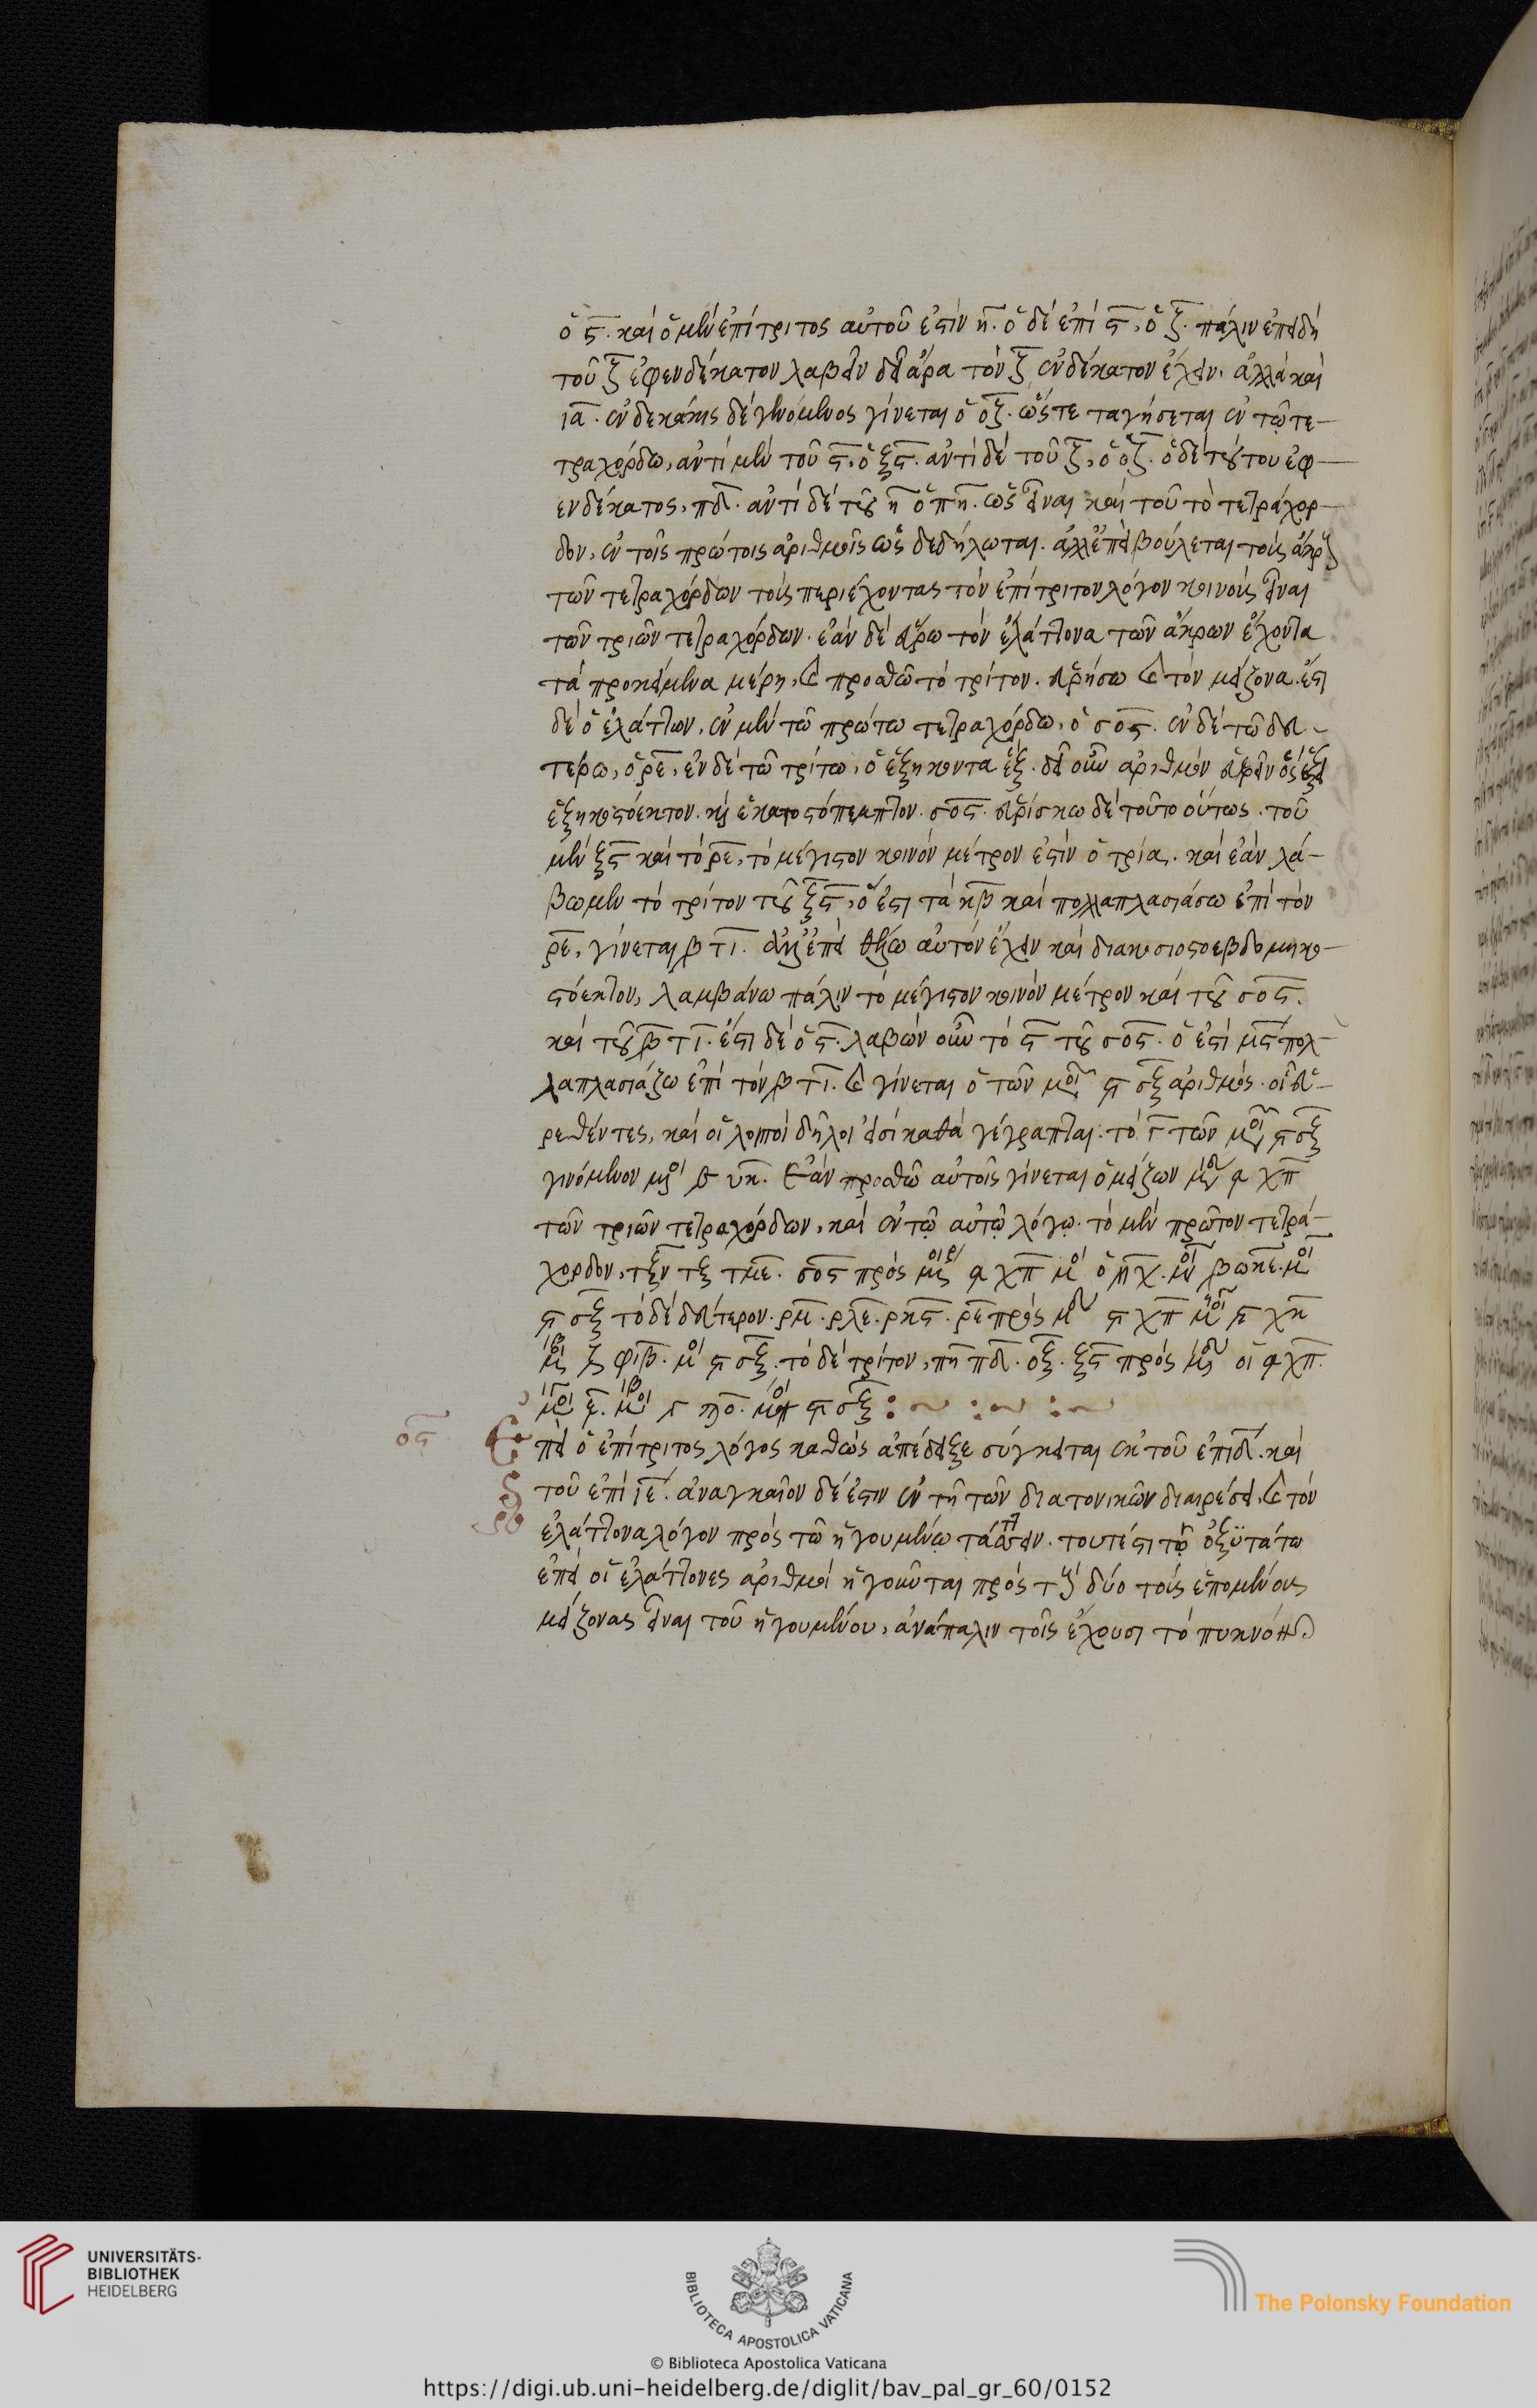 ὁ ϛ. καὶ ὁ μὲν ἐπίτριτος αὐτοῦ ἐστὶν η. ὁ δὲ ἐπὶ ϛ, ὁ ζ. πάλιν ἐπειδὴ
τοῦ ζ ἐφενδέκατον λαβεῖν δεῖ ἄρα τὸν ζ ἑνδέκατον ἔχειν. ἀλλὰ καὶ
ια. ἑνδεκάκις δὲ γενόμενος γίνεται ὁ οζ. ὥστε ταγήσεται ἐν τῷ τε-
τραχόρδω, ἀντὶ μὲν τοῦ ϛ, ὁ ξϛ. ἀντὶ δὲ τοῦ ζ, ὁ οζ. ὁ δὲ τούτου ἐφ-
ενδέκατος, πδ. ἀντὶ δὲ τοῦ η ὁ πη. ὡς εἶναι καὶ τοῦτο τετράχορ-
δον, ἐν τοῖς πρώτοις ἀριθμοῖς ὡς δεδήλωται. ἀλλ' ἐπεὶ βούλεται τοὺς ἄκρους
τῶν τετραχόρδων τοὺς περιέχοντας τὸν ἐπίτριτον λόγον κοινοὺς εἶναι
τῶν τριῶν τετραχόρδων. ἐὰν δὲ εὕρω τὸν ἐλάττονα τῶν ἄκρων ἔχοντα
τὰ προκείμενα μέρη, καὶ προσθῶ τὸ τρίτον. εὑρήσω καὶ τὸν μείζονα. ἔστι
δὲ ὁ ἐλάττων, ἐν μὲν τῶ πρώτω τετραχόρδω, ὁ σοϛ. ἐν δὲ τῶ δευ-
τέρω, ὁ ρε, ἐν δὲ τῶ τρίτω, ὁ ἑξήκοντα ἕξ. δεῖ οὖν ἀριθμὸν εὑρεῖν ὃς ἕξει
ἑξηκοστόεκτον. καὶ ἑκατοστόπεμπτον. σοϛ. εὑρίσκω δὲ τοῦτο οὕτως. τοῦ
μὲν ξϛ καὶ τὸ ρε, τὸ μέγιστον κοινὸν μέτρον ἐστὶν ὁ τρία. καὶ ἐὰν λά-
βωμεν τὸ τρίτον τοῦ ξϛ, ὅ ἐστι τὰ κβ καὶ πολλαπλασιάσω ἐπὶ τὸν
ρε, γίνεται βτι. ἀλλ' ἐπεὶ θέλω αὐτὸν ἔχειν καὶ διακοσιοστοεβδομηκο-
στόεκτον, λαμβάνω πάλιν τὸ μέγιστον κοινὸν μέτρον καὶ τοῦ σοϛ.
καὶ τοῦ βτι. ἔστι δὲ ὁ ϛ. λαβὼν οὖν τὸ ϛ τοῦ σοϛ. ὅ ἐστι μϛ πολ-
λαπλασιάζω ἐπὶ τὸν βτι. καὶ γίνεται ὁ τῶν ϛσξ ἀριθμός. οἱ εὑ-
ρεθέντες, καὶ οἱ λοιποὶ δῆλοι εἰσὶ καθὰ γέγραπται. τὸ γ τῶν ϛσξ
γινόμενον υκ. ἐὰν προσθῶ αὐτοῖς γίνεται ὁ μείζων χπ
τῶν τριῶν τετραχόρδων, καὶ ἐν τῷ αὐτῷ λόγῳ. τὸ μὲν πρῶτον τετρά-
χορδον, τξη τξ τμε. σοϛ πρὸς χπ
ϛσξ τὸ δὲ δεύτερον. ρμ. ρλε. ρκϛ. ρε πρὸς χπ
ζφιβ. ϛσξ. τὸ δὲ τρίτον, πη πδ. οζ. ξϛ πρὸς χπ.
ϛσξ
οϛ Ἐπεὶ ὁ ἐπίτριτος λόγος καθὼς ἀπέδειξε σύγκειται ἐκ τοῦ ἐπὶ δ. καὶ
τοῦ ἐπὶ ιε. ἀναγκαῖον δέ ἐστιν ἐν τῇ τῶν διατονικῶν διαιρέσει, καὶ τὸν
ἐλάττονα λόγον πρὸς τῶ ἡγουμένῳ τάττειν. τουτέστι τῷ ὀξυτάτω
ἐπεὶ οἱ ἐλάττονες ἀριθμοὶ ἡγοῦνται πρὸς τὸ δύο τοὺς ἑπομένους
μείζονας εἶναι τοῦ ἡγουμένου, ἀνάπαλιν τοῖς ἔχουσι τὸ πυκνόν
UNIVERSITÄTS-
BIBLIOTHEK
HEIDELBERG
BIBLIOTECA APOSTOLICA VATICANA
The Polonsky Foundation
© Biblioteca Apostolica Vaticana
https://digi.ub.uni-heidelberg.de/diglit/bav_pal_gr_60/0152